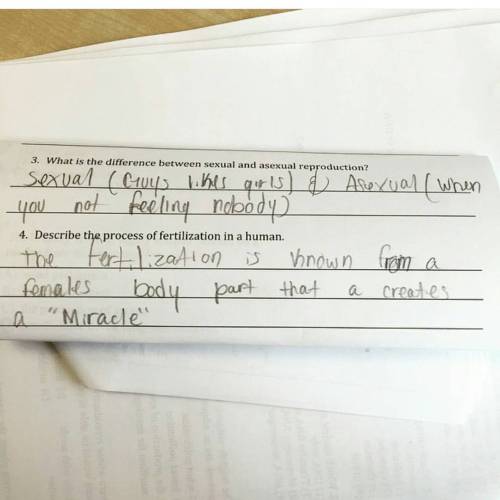 3. What is the difference between sexual and asexual reproduction?
Sexual (Guys likes girls) & Asexual (when
you not feeling nobody)
4. Describe the process of fertilization in a human.
The fertilization is known from a
females body part that a creates
a "Miracle"